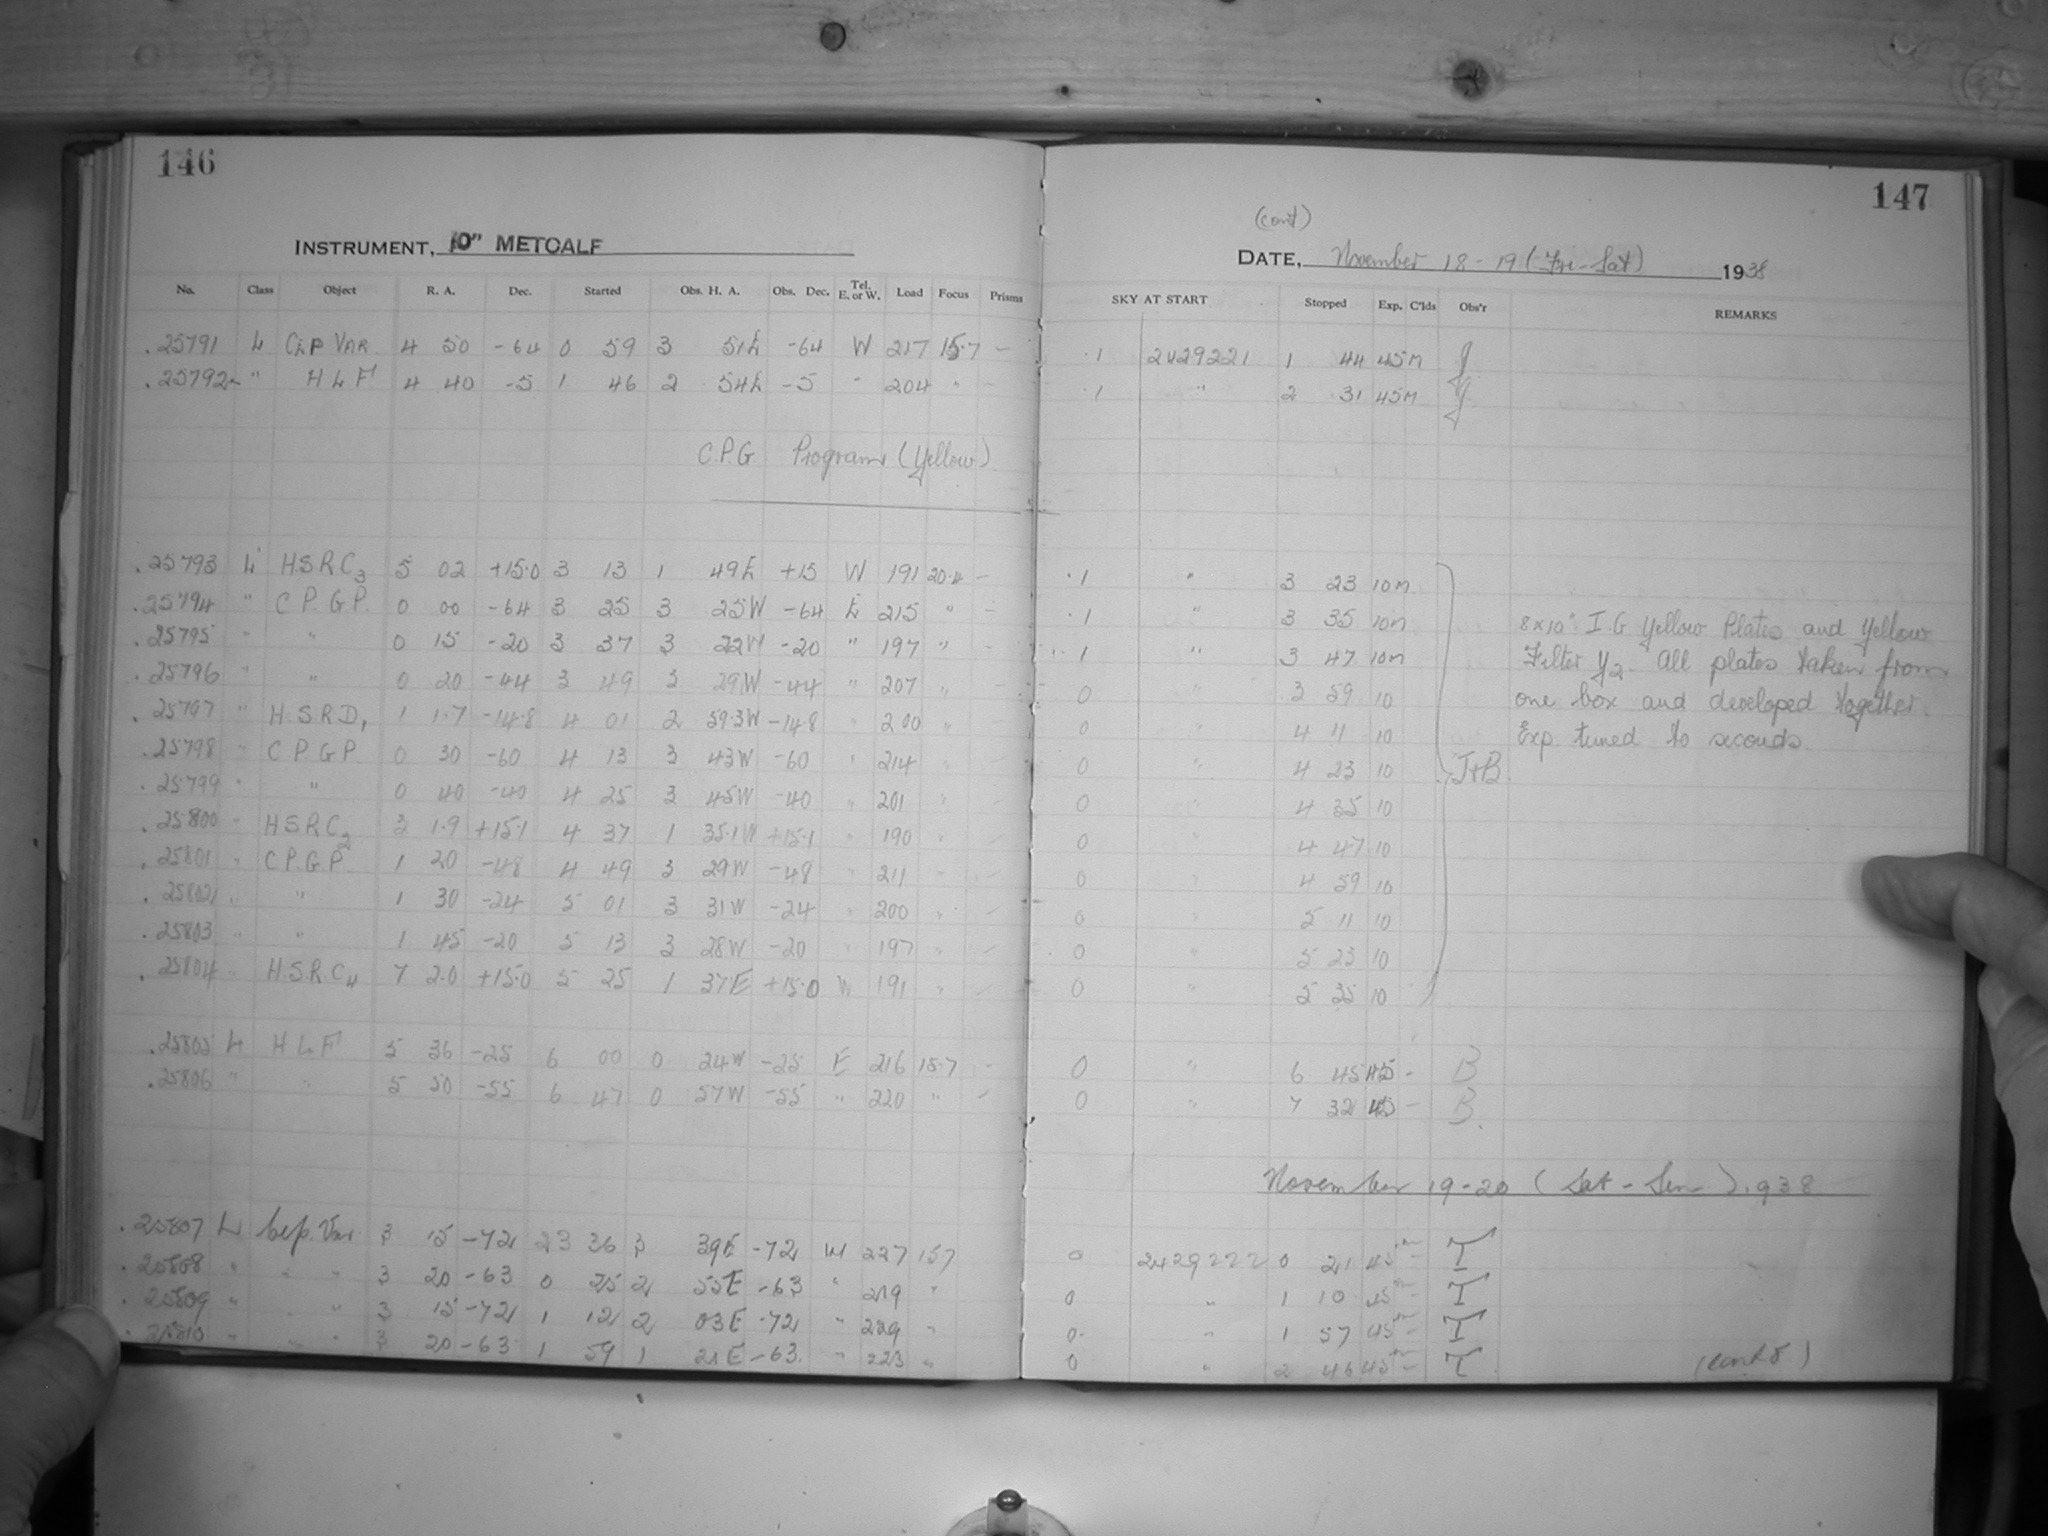 146
INSTRUMENT, 10" METCALF
No. Class Object R. A. Dec. Started Obs. H. A. Obs. Dec. Tel. E. or W. Load Focus Prisms
.25791 L CEP VAR 4 50 -64 0 59 3 51E -64 W 217 15.7 -
.25792 " H L F 4 40 -5 1 46 2 54E -5 " 204 " -
C.P.G. Program (Yellow)
.25793 L H.S.R.C3 5 02 +15.0 3 13 1 49E +15 W 191 20.4 -
.25794 " C.P.G.P. 0 00 -64 3 25 3 25W -64 E 215 " -
.25795 " " 0 15 -20 3 37 3 22W -20 " 197 " -
.25796 " " 0 20 -44 3 49 3 29W -44 " 207 " -
.25797 " H.S.R.D1 1 1.7 -14.8 4 01 2 59.3W -14.8 " 200 "
.25798 " C P G P 0 30 -60 4 13 3 43W -60 " 214 " -
.25799 " " 0 40 -40 4 25 3 45W -40 " 201 " -
.25800 " H S R C2 3 1.9 +15.1 4 37 1 35.1W +15.1 " 190 " -
.25801 " C.P.G.P. 1 20 -48 4 49 3 29W -48 " 211 -
.25802 " " 1 30 -24 5 01 3 31W -24 " 200 " -
.25803 " " 1 45 -20 5 13 3 28W -20 " 197 " -
.25804 " H.S.R.C4 7 2.0 +15.0 5 25 1 37E +15.0 W 191 " -
.25805 L H L F 5 36 -25 6 00 0 24W -25 E 216 15.7 -
.25806 " " 5 50 -55 6 47 0 57W -55 " 220 " -
.25807 L Cep. Var 3 15 -72 23 36 3 39E -72 W 227 157
.25808 " " " 3 20 -63 0 25 2 55E -63 " 219 "
.25809 " " 3 15 -72 1 12 2 03E -72 " 229 "
.25810 " " " 3 20 -63 1 59 1 21E -63. " 223 "
147
(cont)
DATE, November 18-19 (Fri-Sat) 1938
SKY AT START Stopped Exp. C'lds Obs'r REMARKS
.1 2429221 1 44 45M J
.1 " 2 31 45M J
.1 " 3 23 10M
.1 " 3 35 10M
.1 " 3 47 10M
0 " 3 59 10
0 " 4 11 10
0 " 4 23 10 J+B
0 " 4 35 10
0 " 4 47 10
0 " 4 59 10
0 " 5 11 10
0 " 5 23 10
0 " 5 35 10
8x10" I.G Yellow Plates and Yellow
Filter Y2. All plates taken from
one box and developed together.
Exp. timed to seconds.
0 " 6 45 45 - B
0 " 7 32 45 - B.
November 19-20 (Sat-Sun) 1938
0 2429222 0 21 45m - T
0 " 1 10 45m - T
0 " 1 57 45m - T
0 " 2 46 45m - T
(cont'd)